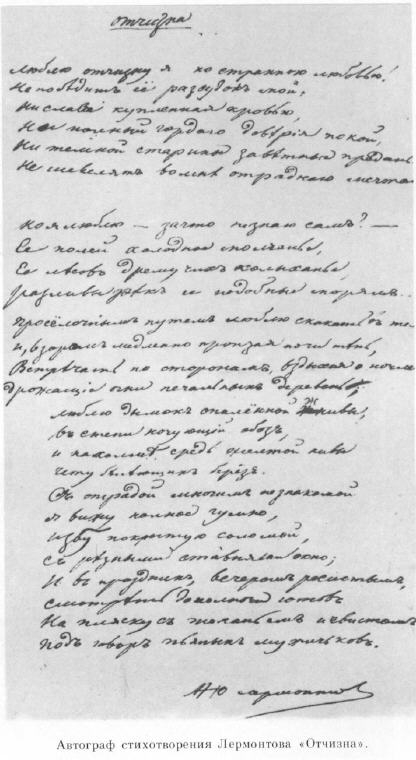 Отчизна
Люблю отчизну я но странною любовью!
Не победитъ её разсудокъ мой,
Ни слава купленная кровью,
Ни полный гордаго довѣрія покой,
Ни темной старины завѣтныя предань
Не шевелятъ во мнѣ отраднаго мечта
Но я люблю — за что не знаю самъ? —
Ея полей холодное молчанье,
Ея лѣсовъ дремучихъ колыханье,
Разливы рѣкъ ея подобные морямъ..
Просёлочнымъ путемъ люблю скакать въ те
И, взоромъ медленно пронзая ночи тѣнь,
Встрѣчать по сторонамъ, вздыхая о ночле
Дрожащіе огни печальныхъ деревень;
Люблю дымокъ спалённой жнивы,
Въ степи кочующій обозъ,
И на холмѣ средь желтой нивы
Чету бѣлѣющихъ берёзъ.
Съ отрадой многимъ незнакомой
Я вижу полное гумно,
Избу покрытую соломой,
Съ рѣзными ставнями окно;
И въ праздникъ, вечеромъ росистымъ,
Смотрѣть до полночи готовъ
На пляску съ топаньемъ и свистомъ
Подъ говоръ пьяныхъ мужичковъ.
М Ю Лермонтов
Автограф стихотворения Лермонтова «Отчизна».